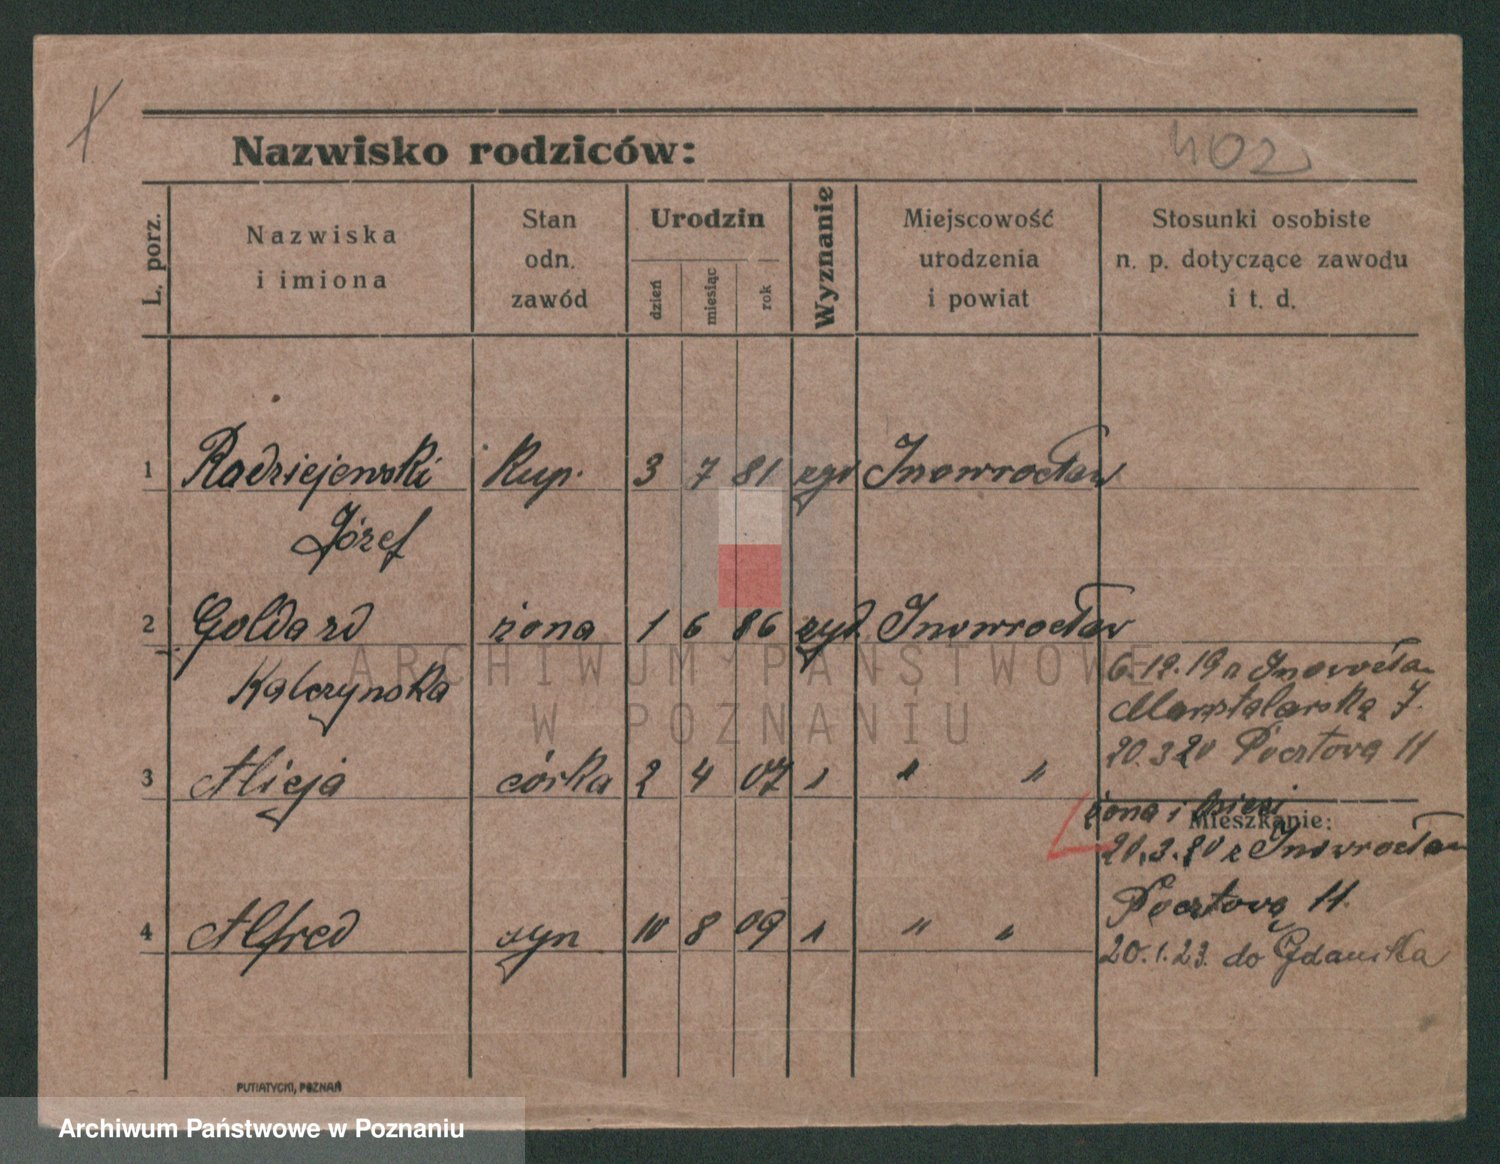 402
Nazwisko rodziców:
L. porz.
Nazwiska
i imiona
Stan
odn.
zawód
Urodzin
dzień
miesiąc
rok
Wyznanie
Miejscowość
urodzenia
i powiat
Stosunki osobiste
n. p. dotyczące zawodu
i t. d.
1 Radziejewski Kup. 3 7 81 Inowrocław
Józef
2 żona 1 6 86 żyd. Inowrocław
Kalczynska
6.12.19 Inowrocław
7.
20.3.20 Pocztowa 11
3 Alicja córka 2 4 07 " " "
żona i
Mieszkanie:
20.3.20 z Inowrocław
Pocztowa 11.
4 Alfred syn 10 8 09 " " "
20.1.23. do Gdańska
PUTIATYCKI, POZNAŃ
ARCHIWUM PAŃSTWOWE
W POZNANIU
Archiwum Państwowe w Poznaniu